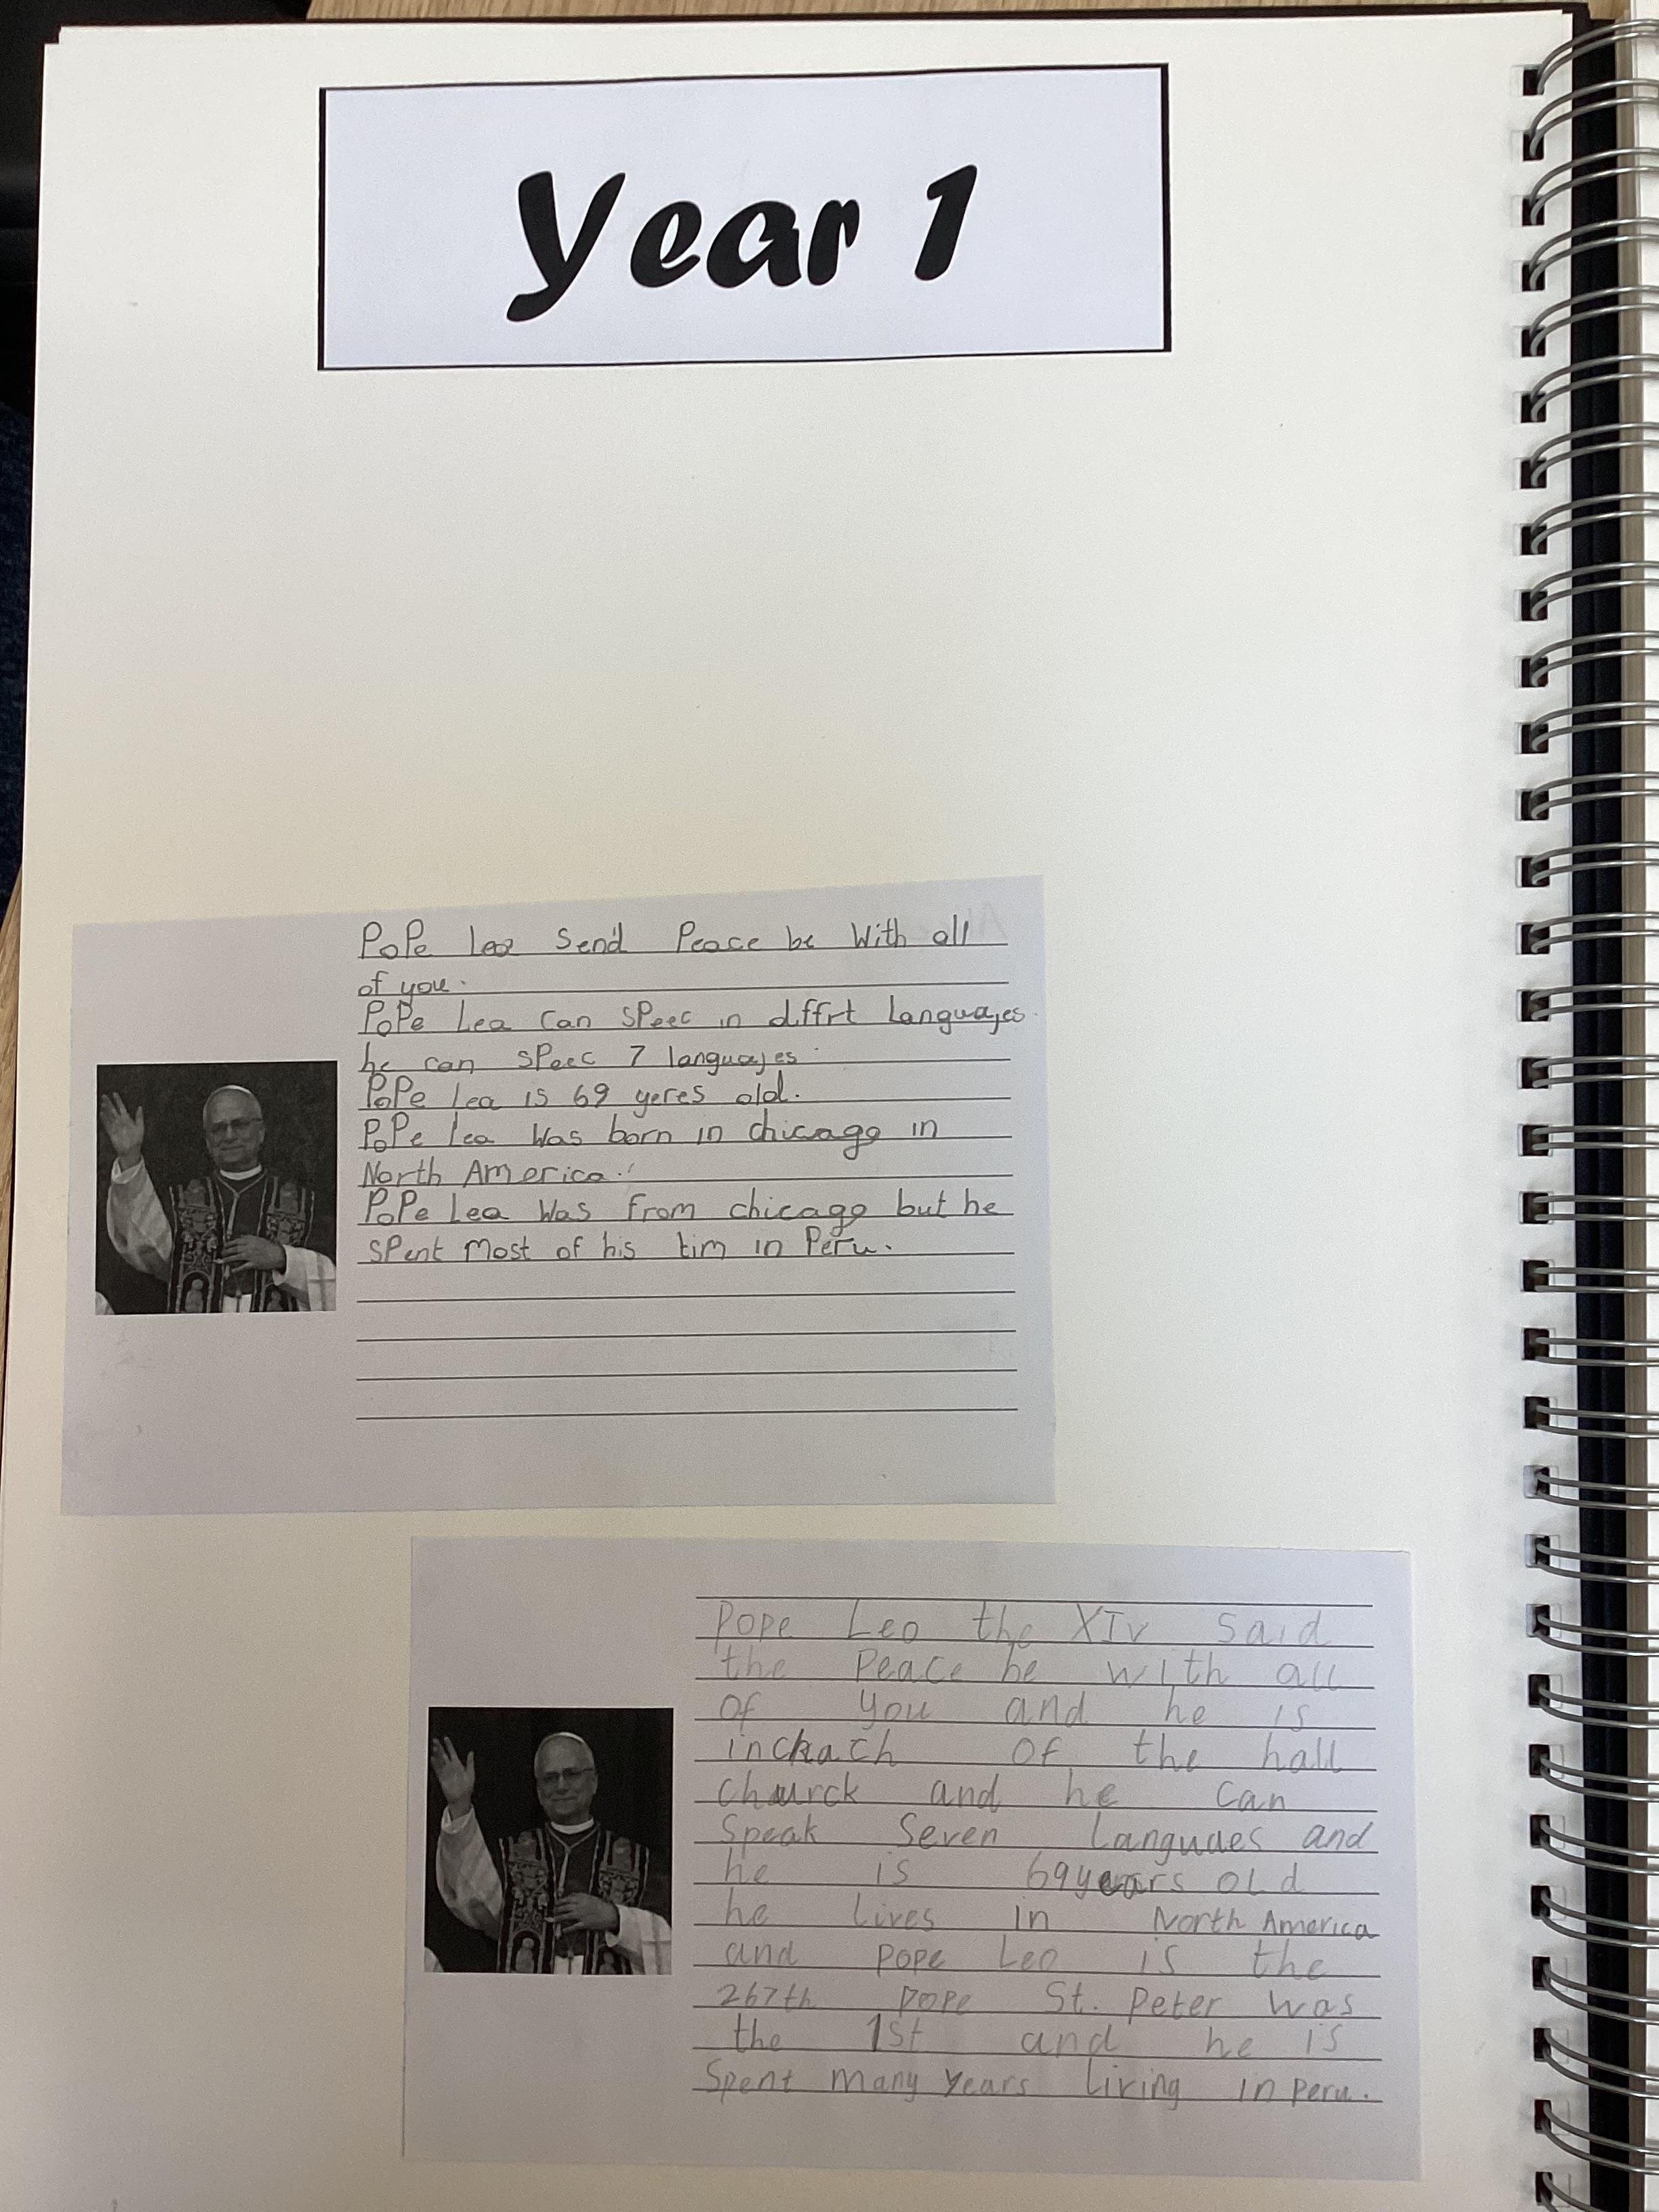 Year 1
PoPe Leo Send Peace be With all
of you.
PoPe Lea Can SPeec in diffrt Languajes.
he can speec 7 languajes.
PoPe Lea is 69 yeres old.
PoPe Lea Was born in chicago in
North America.
PoPe Lea Was from chicago but he
SPent Most of his tim in Peru.
Pope Leo the XIV Said
the Peace be with all
of you and he is
inckach of the hall
chaurck and he can
Speak Seven Languaes and
he is 69 years old
he lives in North America
and pope Leo is the
267th Pope St. Peter was
the 1st and he is
Spent many years living in peru.